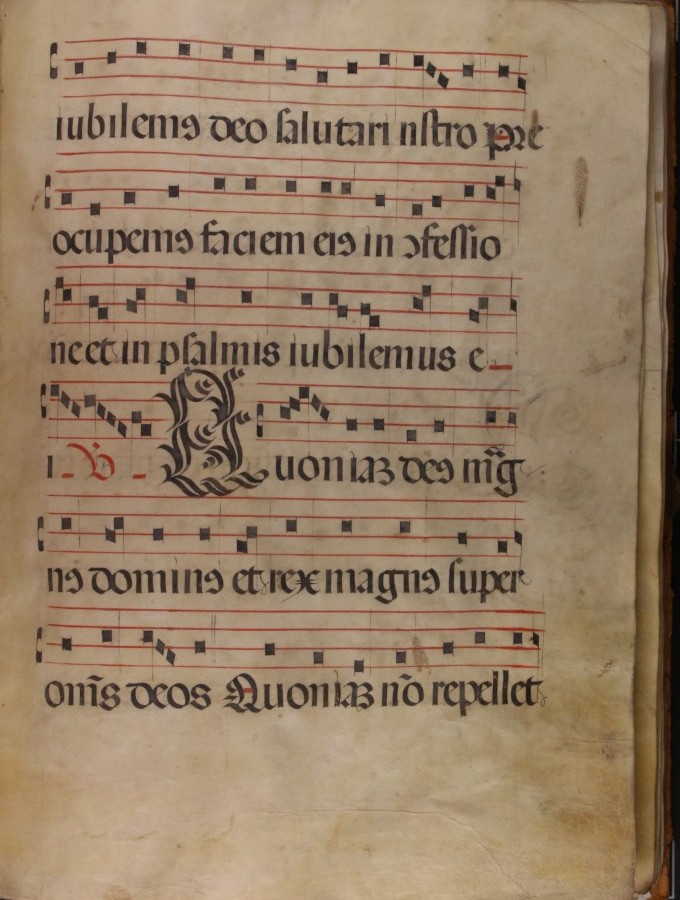 iubilemꝰ deo salutari nꝛ̃o pre
ocupemꝰ faciem eiꝰ in ↄfessio
ne et in psalmis iubilemus e
i ℟ Quoniaꝫ deꝰ mãg
nꝰ dominꝰ et rex magnꝰ super
om̃s deos Quoniaꝫ nõ repellet